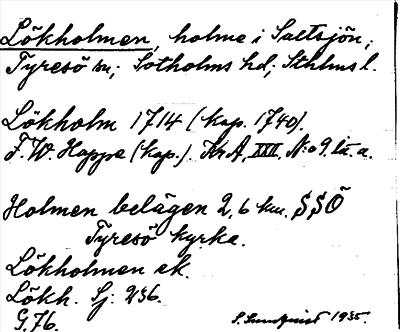 Lökholmen, holme i Saltsjön;
Tyresö sn; Sotholms hd; Sthlms l.
Lökholm 1714 (kop. 1740).
F. W. Happe (kop.). KrA, XXII, N:o 9 lit. a.
Holmen belägen 2,6 km. SSÖ
Tyresö kyrka.
Lökholmen ek.
Lökh. Sj. 236.
G. 76.
S. Lundquist 1935.